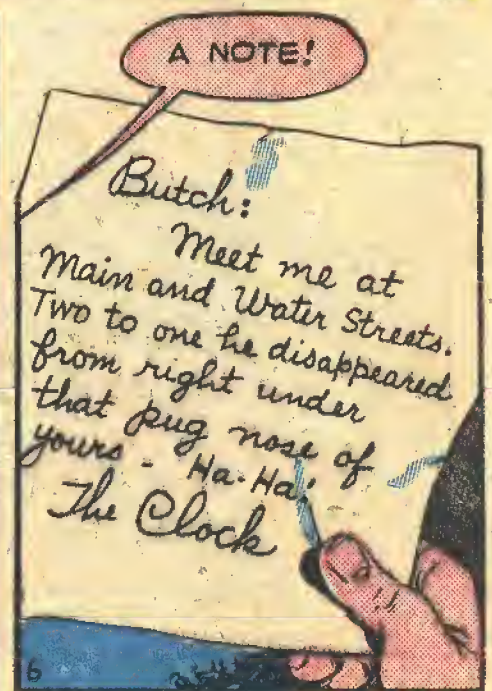 A NOTE!
Butch:
Meet me at
Main and Water Streets.
Two to one he disappeared
from right under
that pug nose of
yours - Ha-Ha!
The Clock
6